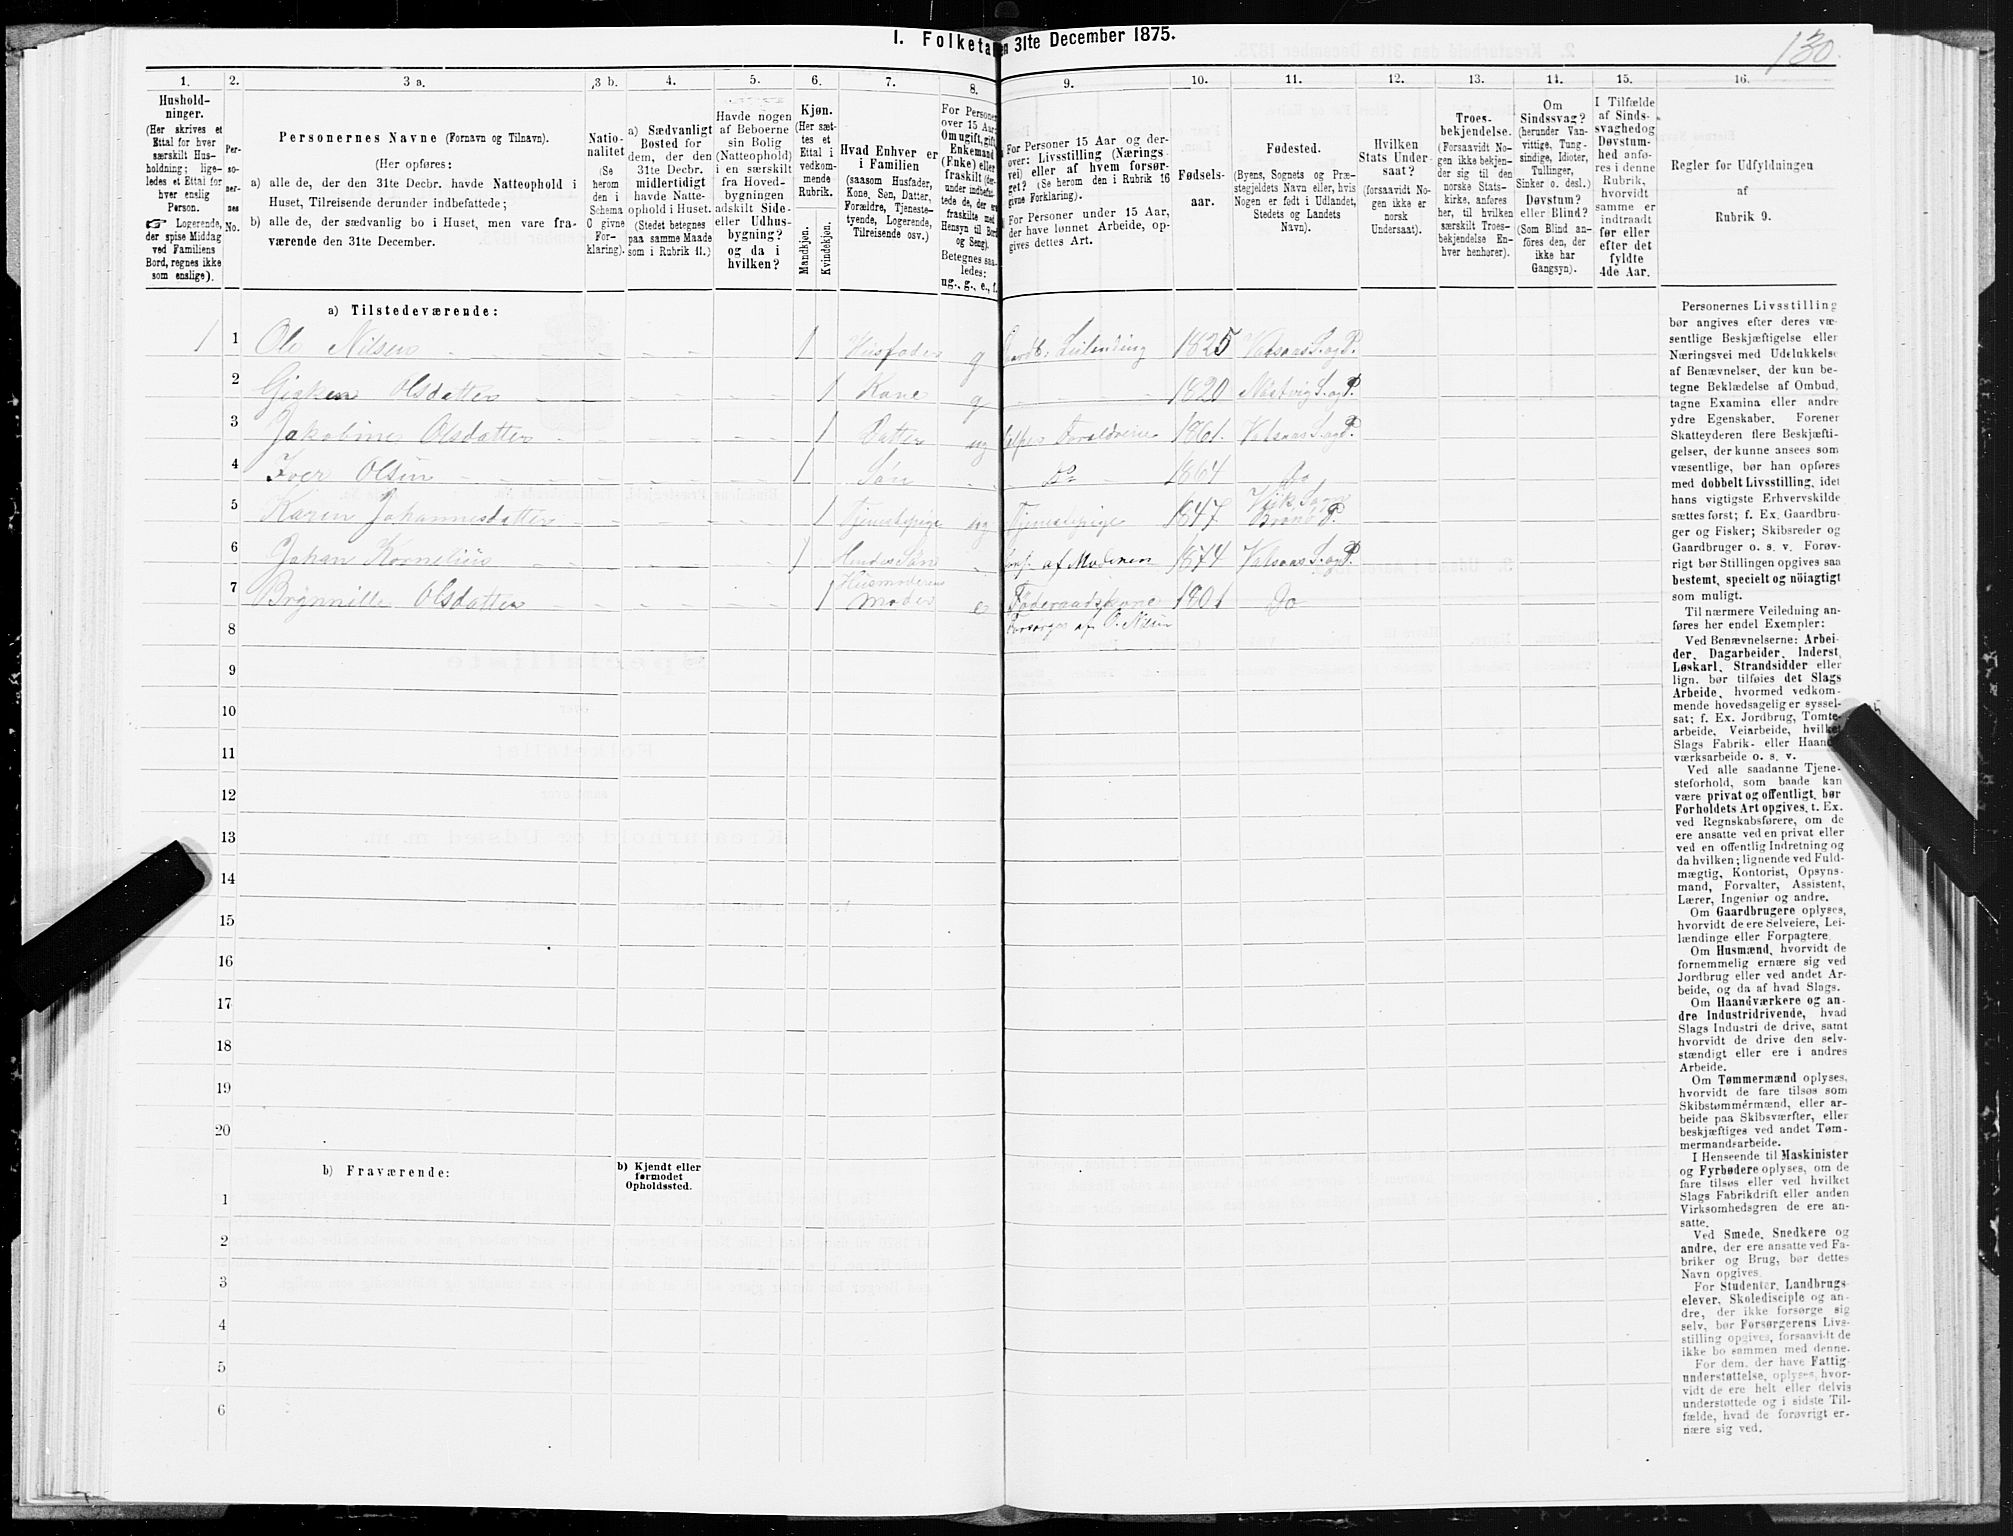 I. Folketal den 31te December 1875.
130.
1.
Hushold-
ninger.
(Her skrives et
Ettal for hver
særskilt Hus-
holdning; lige-
ledes et Ettal for
hver enslig
Person.
☞ Logerende,
der spise Middag
ved Familiens
Bord, regnes ikke
som enslige).
2.
Per-
so-
ner-
nes
No.
3 a.
Personernes Navne (Fornavn og Tilnavn).
(Her opføres:
a) alle de, der den 31te Decbr. havde Natteophold i
Huset, Tilreisende derunder indbefattede;
b) alle de, der sædvanlig bo i Huset, men vare fra-
værende den 31te December.
3 b.
Natio-
nalitet
(Se
herom
den i
Schema
O givne
For-
klaring).
4.
a) Sædvanligt
Bosted for
dem, der den
31te Decbr.
midlertidigt
havde Natte-
ophold i Huset.
(Stedet betegnes
paa samme Maade
som i Rubrik 11.)
5.
Havde nogen
af Beboerne
sin Bolig
(Natteophold)
i en særskilt
fra Hoved-
bygningen
adskilt Side-
eller Udhus-
bygning?
og da i
hvilken?
6.
Kjøn.
(Her sæt-
tes et
Ettal i
vedkom-
mende
Rubrik.
Mandkjøn.
Kvindekjøn.
7.
Hvad Enhver er
i Familien
(saasom Husfader,
Kone, Søn, Datter,
Forældre, Tjeneste-
tyende, Logerende,
Tilreisende osv.)
8.
For Personer
over 15 Aar:
Om ugift, gift,
Enkemand
(Enke) eller
fraskilt (der-
under indbefat-
tede de, der ere
fraskilte med
Hensyn til Bord
og Seng).
Betegnes saa-
ledes:
ug., g., e., f.
9.
For Personer 15 Aar og der-
over: Livsstilling (Nærings-
vei) eller af hvem forsør-
get? (Se herom den i Rubrik 16
givne Forklaring).
For Personer under 15 Aar,
der have lønnet Arbeide, op-
gives dettes Art.
10.
Fødsels-
aar.
11.
Fødested.
(Byens, Sognets og Præ-
stegjeldets Navn eller, hvis
Nogen er født i Udlandet,
Stedets og Landets
Navn).
12.
Hvilken
Stats Under-
saat?
(forsaavidt No-
gen ikke er
norsk
Undersaat).
13.
Troes-
bekjendelse.
(Forsaavidt No-
gen ikke bekjen-
der sig til den
norske Stats-
kirke, anføres
her, til hvilken
særskilt Troes-
bekjendelse En-
hver henhører).
14.
Om
Sindssvag?
(herunder Van-
vittige, Tung-
sindige, Idioter,
Tullinger,
Sinker o. desl.)
Døvstum?
eller Blind?
(Som Blind an-
føres den, der
ikke har
Gangsyn).
15.
I Tilfælde
af Sinds-
svaghed og
Døvstum-
hed anfø-
res i denne
Rubrik,
hvorvidt
samme er
indtraadt
før eller
efter det
fyldte
4de Aar.
16.
Regler for Udfyldningen
af
Rubrik 9.
a) Tilstedeværende:
1 1 Ole Nilsen 1 Husfader g Gaardb. Leilending 1825 Valsnes S. og P.
2 Olsdatter 1 Kone g 1820 S. og P.
3 Jakobine Olsdatter 1 Datter ug Forældrene 1861. Valsnes S. og P.
4 Iver Olsen 1 Søn Do 1864 Do
5 Karen Johannesdatter 1 Tjenestepige ug Tjenestepige 1847 Viik Sogn
Brønø P.
6 Johan Kornelius 1 Hendes Søn af Moderen 1874 Valsnes S. og P.
7 Olsdatter 1 Husmoderens
Moder e Føderaadskone 1801 Do
Forsørges af O. Nilsen
8
9
10
11
12
13
14
15
16
17
18
19
20
b) Fraværende:
b) Kjendt eller
formodet
Opholdssted.
1
2
3
4
5
6
Personernes Livsstilling
bør angives efter deres væ-
sentlige Beskjæftigelse eller
Næringsvei med Udelukkelse
af Benævnelser, der kun be-
tegne Beklædelse af Ombud,
tagne Examina eller andre
ydre Egenskaber. Forener
Skatteyderen flere Beskjæfti-
gelser, der kunne ansees som
væsentlige, bør han opføres
med dobbelt Livsstilling, idet
hans vigtigste Erhvervskilde
sættes først; f. Ex. Gaardbru-
ger og Fisker; Skibsreder og
Gaardbruger o. s. v. Forøv-
rigt bør Stillingen opgives saa
bestemt, specielt og nöiagtigt
som muligt.
Til nærmere Veiledning an-
føres her endel Exempler:
Ved Benævnelserne: Arbei-
der, Dagarbeider, Inderst,
Løskarl, Strandsidder eller
lign. bør tilføies det Slags
Arbeide, hvormed vedkom-
mende hovedsagelig er syssel-
sat; f. Ex. Jordbrug, Tomte-
arbeide, Veiarbeide, hvilket
Slags Fabrik- eller Haand-
værksarbeide o. s. v.
Ved alle saadanne Tjene-
steforhold, som baade kan
være privat og offentligt, bør
Forholdets Art opgives, t. Ex.
ved Regnskabsførere, om de
ere ansatte ved en privat eller
ved en offentlig Indretning og
da hvilken; lignende ved Fuld-
mægtig, Kontorist, Opsyns-
mand, Forvalter, Assistent,
Lærer, Ingeniør og andre.
Om Gaardbrugere oplyses,
hvorvidt de ere Selveiere, Lei-
lændinge eller Forpagtere.
Om Husmænd, hvorvidt de
fornemmelig ernære sig ved
Jordbrug eller ved andet Ar-
beide, og da af hvad Slags.
Om Haandværkere og an-
dre Industridrivende, hvad
Slags Industri de drive, samt
hvorvidt de drive den selv-
stændigt eller ere i andres
Arbeide.
Om Tømmermænd oplyses,
hvorvidt de fare tilsøs som
Skibstømmermænd, eller ar-
beide paa Skibsværfter, eller
beskjæftiges ved andet Tøm-
mermandsarbeide.
I Henseende til Maskinister
og Fyrbødere oplyses, om de
fare tilsøs eller ved hvilket
Slags Fabrikdrift eller anden
Virksomhedsgren de ere an-
satte.
Ved Smede, Snedkere og
andre, der ere ansatte ved Fa-
briker og Brug, bør dettes
Navn opgives.
For Studenter, Landbrugs-
elever, Skoledisciple og an-
dre, der ikke forsørge sig
selv, bør Forsørgerens Livs-
stilling opgives, forsaavidt de
ikke bo sammen med denne.
For dem, der have Fattig-
understøttelse, oplyses, hvor-
vidt de ere helt eller delvis
understøttede og i sidste Til-
fælde, hvad de forøvrigt er-
nære sig ved.